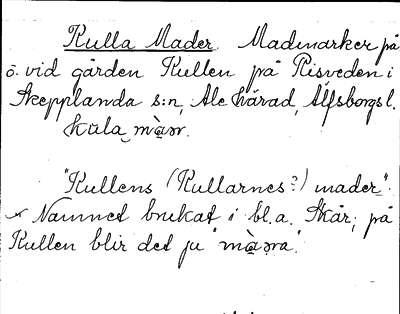 Kulla Mader. Madmarker på
ö. vid gården Kullen på Risveden i
Skepplanda s:n, Ale härad, Älfsborgs l.
kùla màər.
"Kullens (Kullarnes?) mader".
Namnet brukat i bl.a. Skår; på
Kullen blir det ju "màəra".